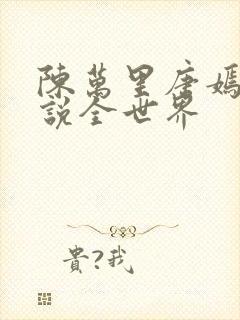 陳萬里唐嫣
說全世界
貴?我